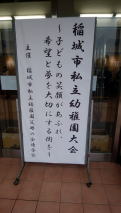 稲城市私立幼稚園大会
～子どもの笑顔があふれ、
希望と夢を大切にする街を～
主催 稲城市私立幼稚園父母の会連合会